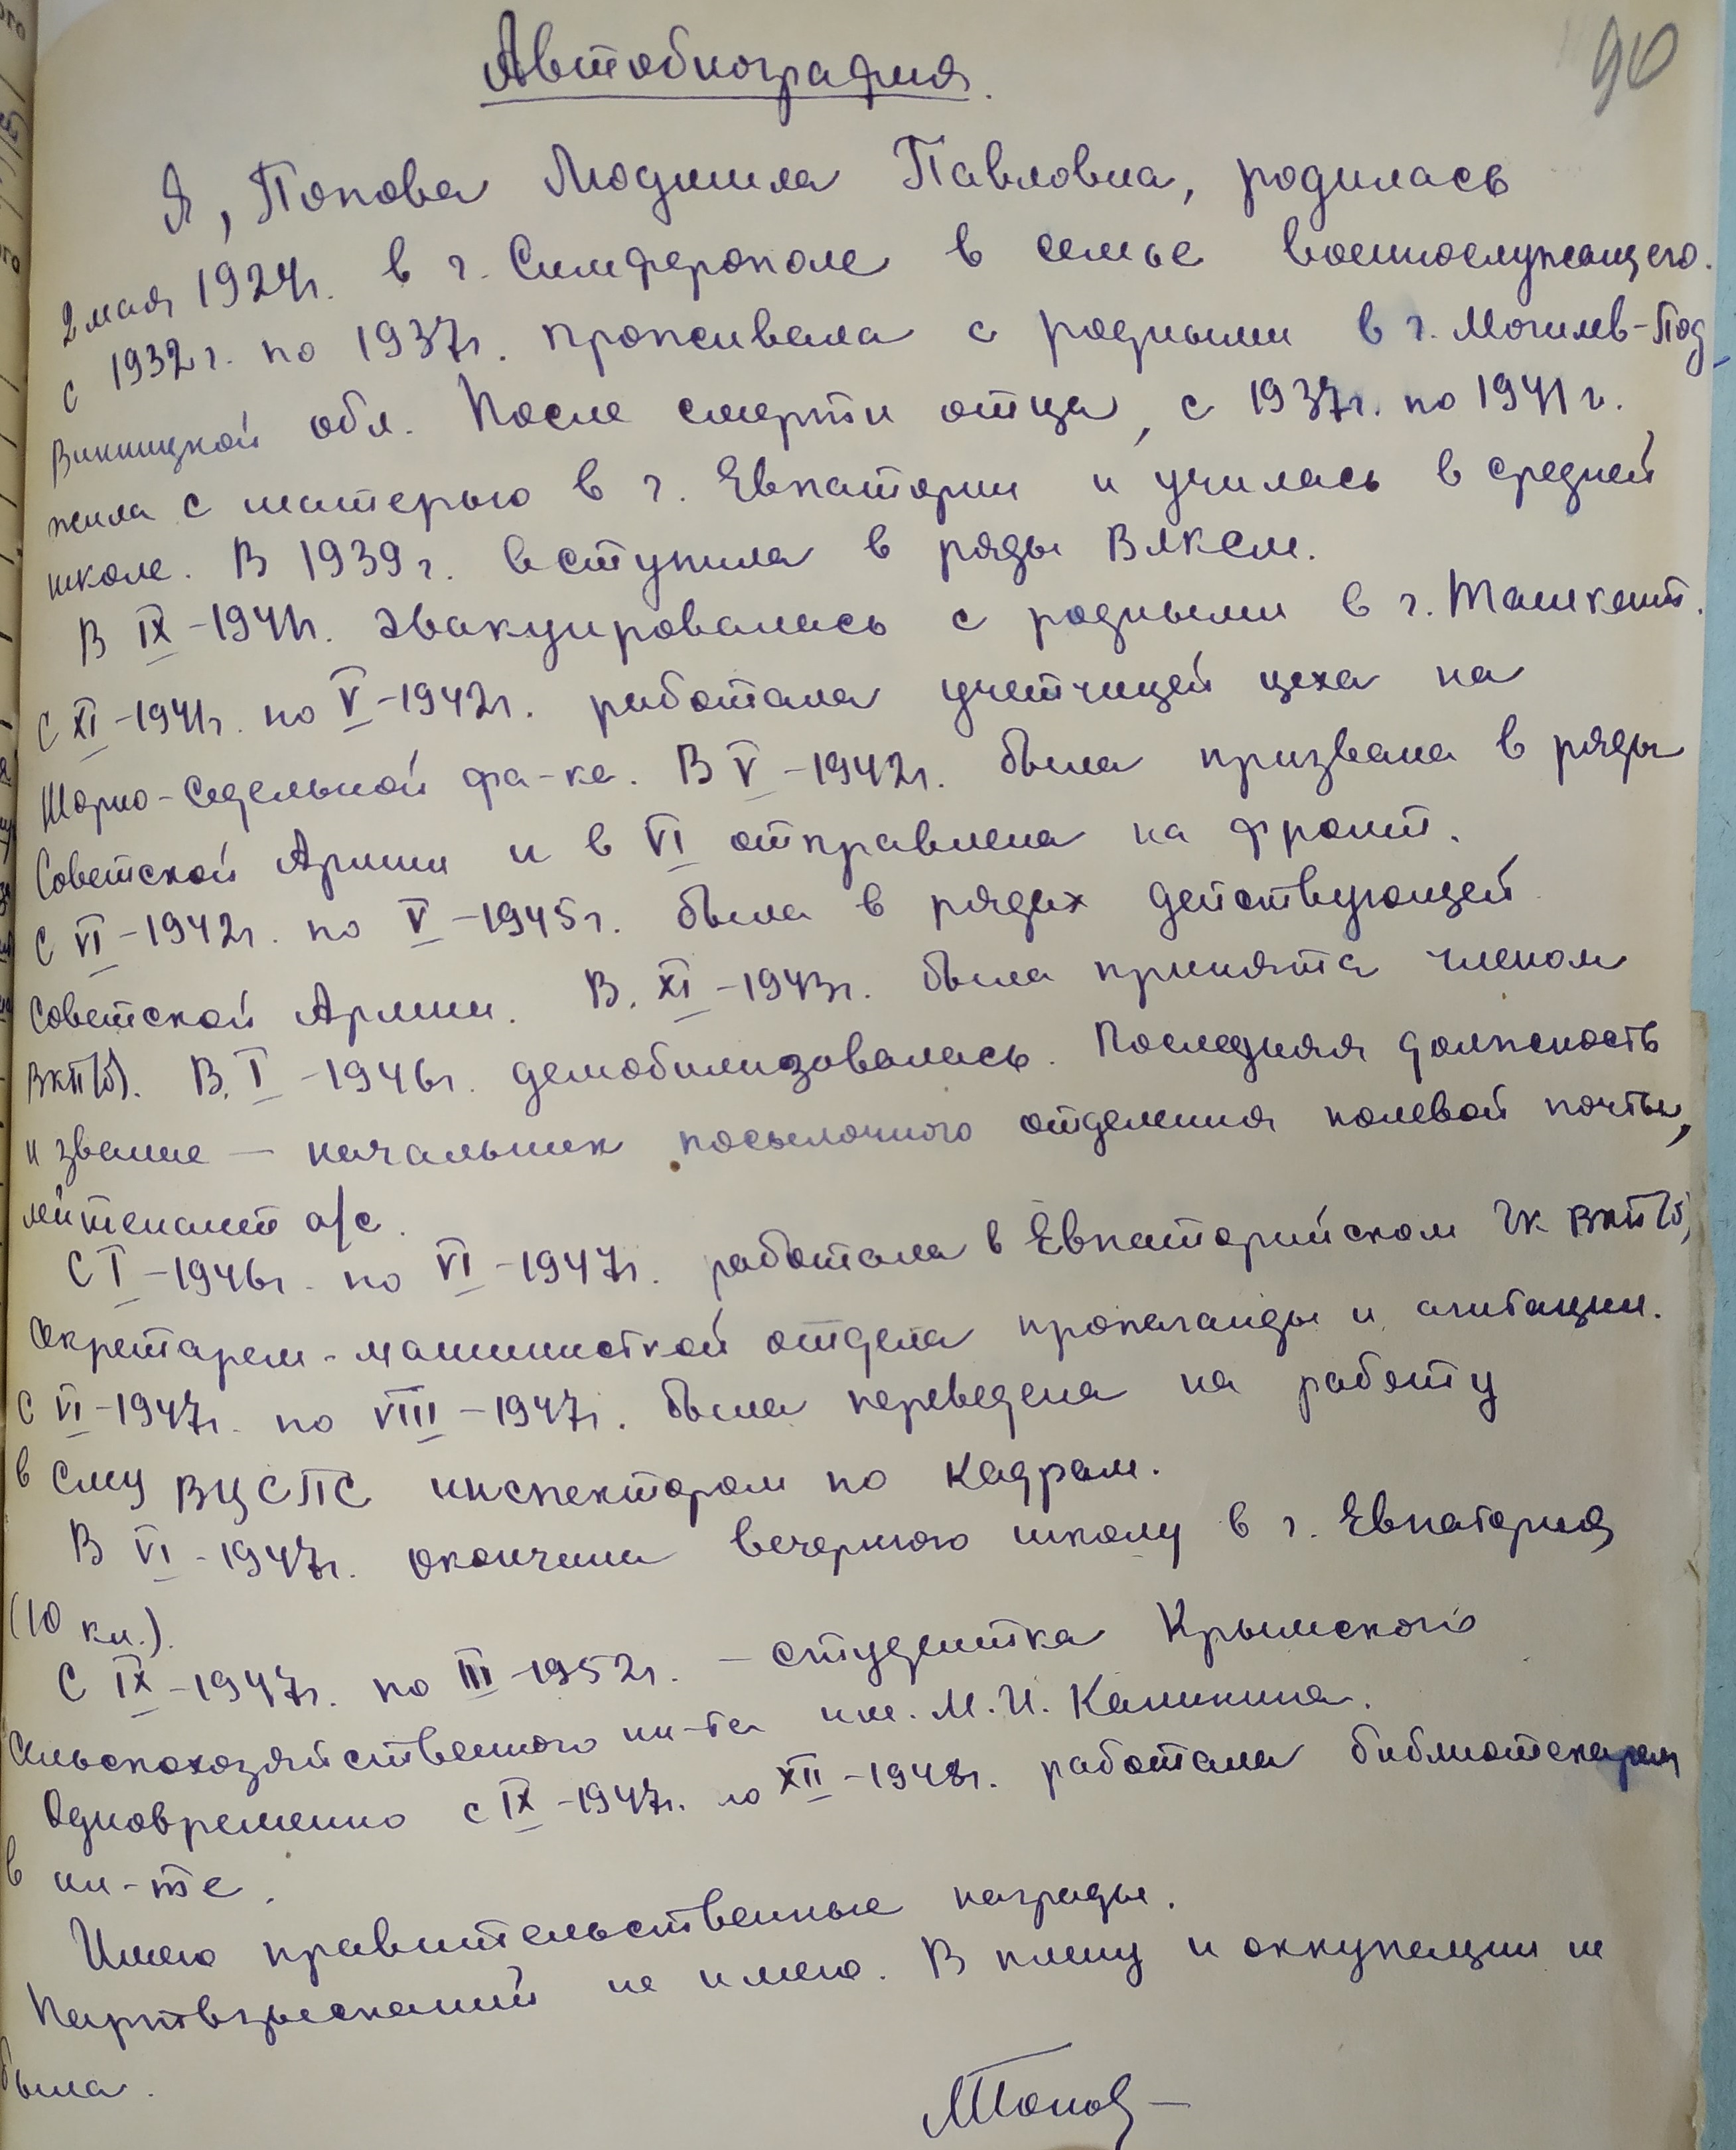 90
Автобиография.
Я, Попова Людмила Павловна, родилась
2 мая 1924г. в г. Симферополе в семье военнослужащего.
С 1932г. по 1937г. проживала с родными в г. Могилев-Под.
Винницкой обл. После смерти отца, с 1937г. по 1941г.,
жила с матерью в г. Евпатории и училась в средней
школе. В 1939г. вступила в ряды ВЛКСМ.
В IX-1941г. эвакуировалась с родными в г. Ташкент.
С XI-1941г. по V-1942г. работала учетчицей цеха на
Шорно-седельной фа-ке. В V-1942г. была призвана в ряды
Советской Армии и в VI отправлена на фронт.
С VI-1942г. по V-1945г. была в рядах действующей
Советской Армии. В. XI-1943г. была принята членом
ВКП(б). В. I-1946г. демобилизовалась. Последняя должность
и звание — начальник посылочного отделения полевой почты,
лейтенант а/с.
С I-1946г. по VI-1947г. работала в Евпаторийском ГК ВКП(б)
секретарем-машинисткой отдела пропаганды и агитации.
С VI-1947г. по VIII-1947г. была переведена на работу
в СМУ ВЦСПС инспектором по кадрам.
В VI-1947г. окончила вечернюю школу в г. Евпатория
(10 кл.).
С IX-1947г. по III-1952г. - студентка Крымского
сельскохозяйственного ин-та им. М.И. Калинина.
Одновременно с IX-1947г. по XII-1948г. работала библиотекарем
в ин-те.
Имею правительственные награды.
Партвзысканий не имею. В плену и оккупации не
была.
ЛПопов